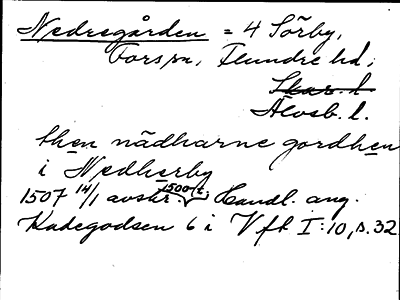 Nedregården = 4 Sörby,
Fors sn, Flundre hd;
Skar. l.
Älvsb. l.
then nädharne gordhen
i Nedherby
1507 14/1 avskr. 1500-t; Handl. ang.
Kadegodsen 6 i Vft I:10, s. 32